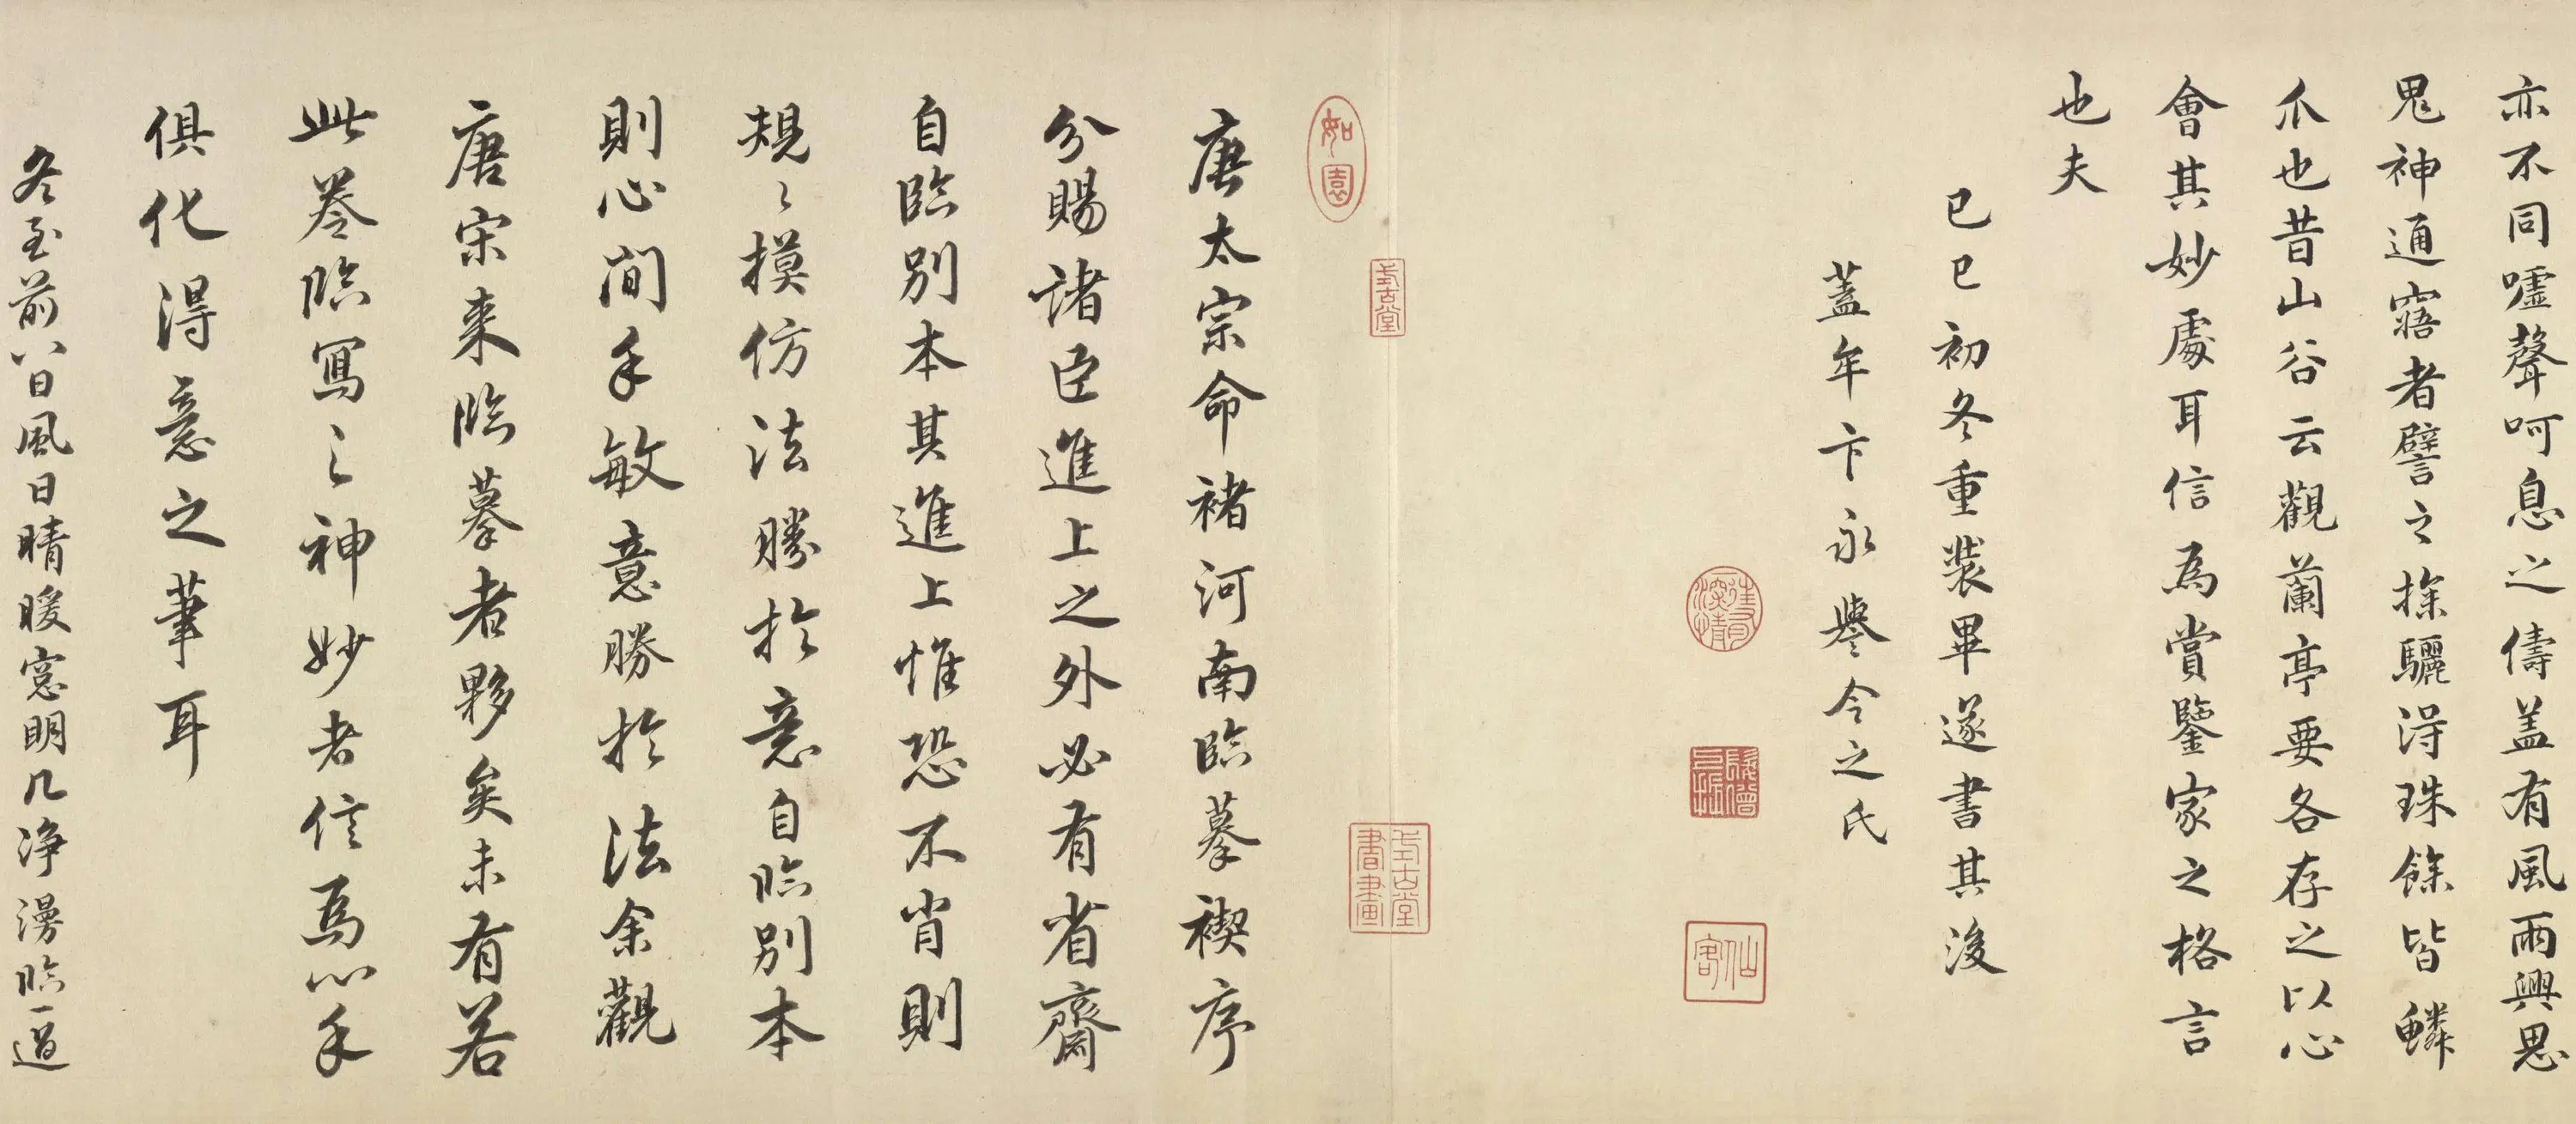 亦不同嘘聲呵息之儔盖有風雨興思
鬼神通寤者譬之探驪得珠餘皆鱗
爪也昔山谷云觀蘭亭要各存之以心
會其妙處耳信為賞鑒家之格言
也夫
已巳初冬重裝畢遂書其後
蓋牟卞永譽令之氏
仙客
如園
式古堂
式古堂書畫
唐太宗命褚河南臨摹禊序
分賜諸臣進上之外必有省齋
自臨別本其進上惟恐不肖則
規〻摸仿法勝於意自臨別本
則心閒手敏意勝於法余觀
唐宋來臨摹者夥矣未有若
此卷臨寫之神妙者信為心手
俱化得意之筆耳
冬至前八日風日晴暖窓明几净漫臨一過